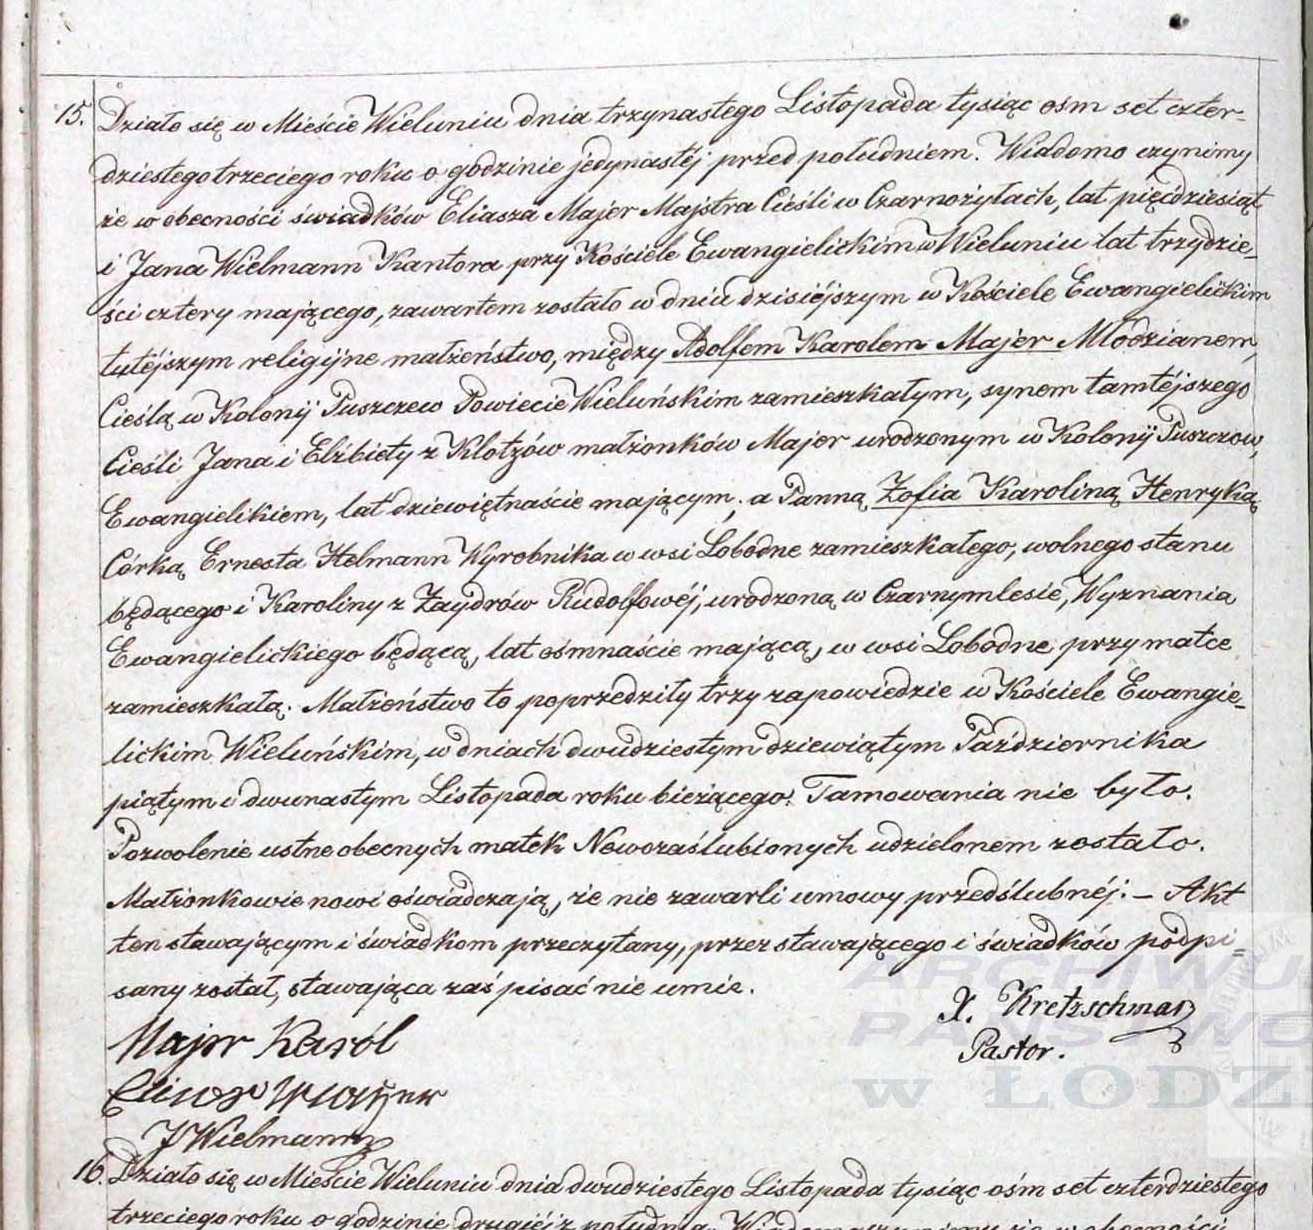 15. Działo się w Mieście Wieluniu dnia trzynastego Listopada tysiąc ośm set czter-
dziestego trzeciego roku o godzinie jedynastéj przed południem. Wiadomo czynimy
że w obecności świadków Eliasza Majer Majstra Cieśli w Czarnożyłach, lat pięćdziesiąt
i Jana Wielmann Kantora przy Kościele Ewangielickim w Wieluniu lat trzydzie-
ści cztery mającego, zawartem zostało w dniu dzisiéjszym w Kościele Ewangielickim
tutéjszym religijne małżeństwo, między Adolfem Karolem Majer Młodzianem,
Cieślą w Kolonij Puszczew Powiecie Wieluńskim zamieszkałym, synem tamtéjszego
Cieśli Jana i Elżbiety z Klotzów małżonków Majer urodzonym w Kolonij Puszczow,
Ewangielikiem, lat dziewiętnaście mającym, a Panną Zofia Karoliną Henryką
Córką Ernesta Helmann Wyrobnika w wsi Łobodne zamieszkałego, wolnego stanu
będącego i Karoliny z Zaydrów Rudolfowéj, urodzoną w Czarnymlesie, Wyznania
Ewangielickiego będącą, lat ośmnaście mającą, w wsi Łobodne przy matce
zamieszkałą. Małżeństwo to poprzedziły trzy zapowiedzie w Kościele Ewangie-
lickim Wieluńskim, w dniach dwudziestym dziewiątym Października
piątym i dwunastym Listopada roku bieżącego. Tamowania nie było.
Pozwolenie ustne obecnych matek Nowozaślubionych udzielonem zostało.
Małżonkowie nowi oświadczają, że nie zawarli umowy przedślubnéj. – Akt
ten stawającym i świadkom przeczytany, przez stawającego i świadków podpi=
sany został, stawająca zaś pisać nie umie.
X. Kretzschmar
Pastor.
Majer Karól
J Wielmann
16. Działo się w Mieście Wieluniu dnia dwudziestego Listopada tysiąc ośm set czterdziestego
trzeciego roku o godzinie drugiéj z południa
ARCHIWU
PAŃSTWO
w ŁODZ